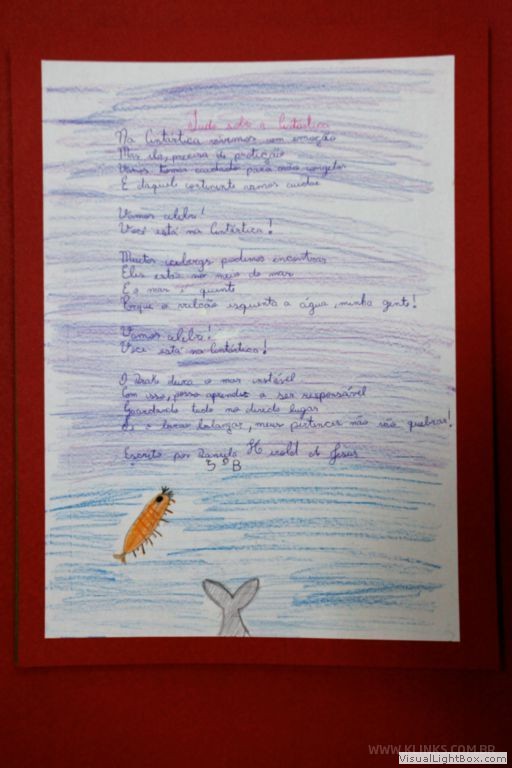 Tudo sobre a Antártica
Na Antártica vivemos com emoção
Mas ela, precisa de proteção
Vamos tomar cuidado para não congelar
E daquele continente vamos cuidar
Vamos celebrar!
Você está na Antártica!
Muitos icebergs podemos encontrar
Eles estão no meio do mar
E o mar é quente
Porque o vulcão esquenta a água, minha gente!
Vamos celebrar!
Você está na Antártica!
O Drake deixa o mar instável
Com isso, posso aprender a ser responsável
Guardando tudo no devido lugar
Se o barco balançar, meus pertences não vão quebrar!
Escrito por Danilo de Jesus
5º B
WWW.KLINKS.COM.BR
VisualLightBox.com